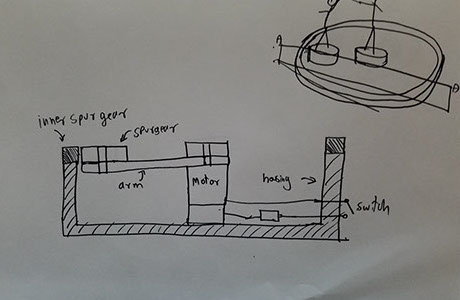 A
A
inner spur gear
spurgear
arm
Motor
hosing
switch